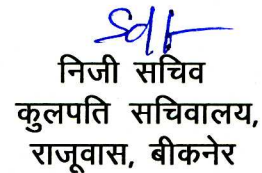 Sd/-
निजी सचिव
कुलपति सचिवालय,
राजूवास, बीकनेर